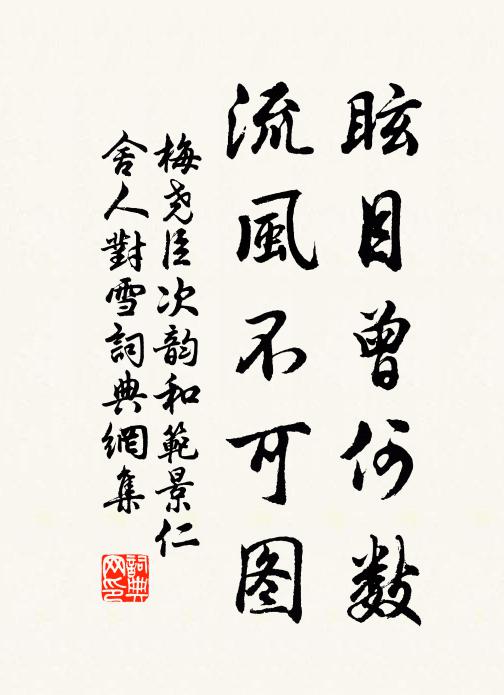 眩目曾何数
流風不可图
梅尧臣次韵和範景仁
舍人對雪詞典網集
詞典网印